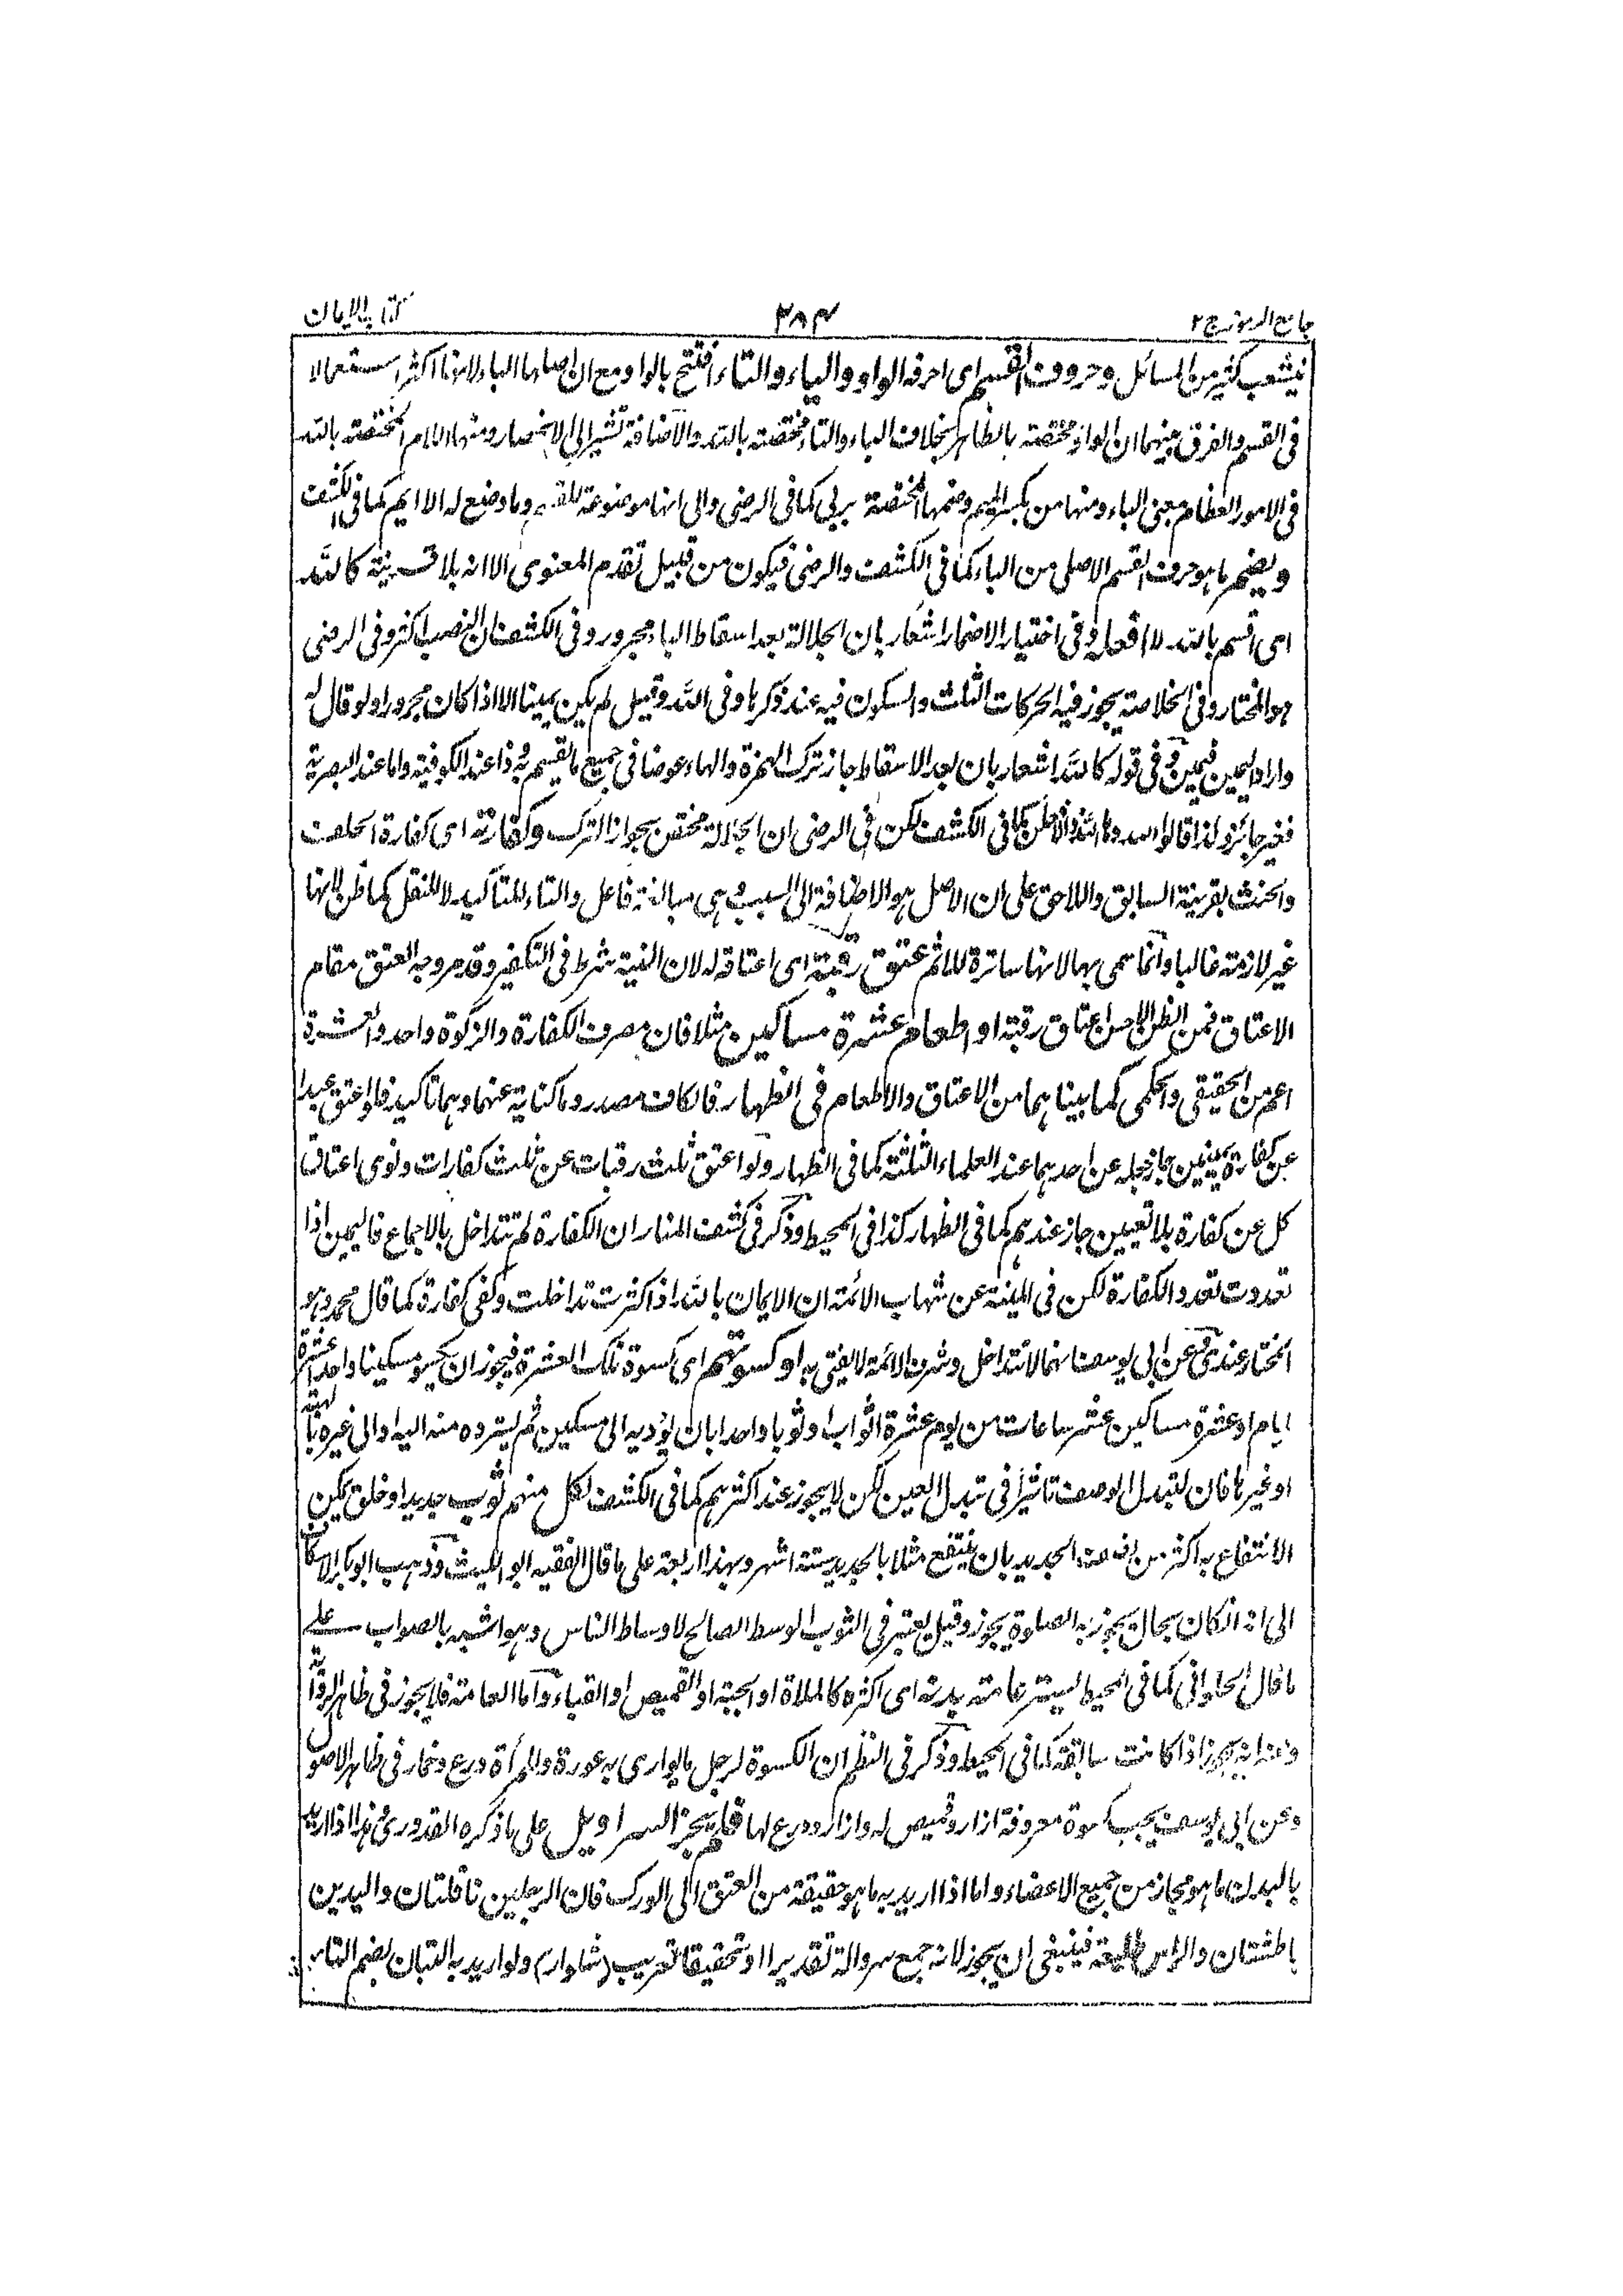 جامع الرموز ج ٢
٣٨٤
كتاب الايمان
فيشعب كثير من المسائل وحروف القسم اى احرفه الواو والباء والتاء افتتح بالواو مع ان اصلها الباء لانها اكثر استعمالا
فى القسم والفرق بينهما ان الواو مختصة بالظاهر بخلاف الباء والتاء مختصة بالله والاضافة تشير الى الاختصار ومنها اللام المختصة بالله
فى الامور العظام بمعنى الباء ومنها من بكسر الميم وضمها المختصة بربى كما فى الرضى والى انها موضوعة للقسم وما وضع له الا ايم كما فى الكشف
ويضمر ما هو حرف القسم الاصلى من الباء كما فى الكشف والرضى فيكون من قبيل تقدم المعنوى الا انه بلا قرينة كالله
اى اقسم بالله لا افعله وفى اختيار الاضمار اشعار بان الجلالة بعد اسقاط الباء مجرور وفى الكشف ان النصب اكثر وفى الرضى
هو المختار وفى الخلاصة يجوز فيه الحركات الثلث والسكون فيه عند ذكر ها وفى الله وقيل لم يكن يمينا الا اذا كان مجرورا ولو قال له
واراد اليمين فيمين وفى قوله كالله اشعار بان بعد الاسقاط جاز ترك الهمزة والهاء عوضا فى جميع ما يقسم به وذا عند الكوفية واما عند البصرية
فغير جائز ولذا قالوا الله وها الله لافعلن كما فى الكشف لكن فى الرضى ان الجلالة مختص بجواز الترك وكفارته اى كفارة الحلف
والحنث بقرينة السابق واللاحق على ان الاصل هو الاضافة الى السبب وهى مبالغة فاعل والتاء للتأكيد لا للنقل كما ظن لانها
غير لازمة غالبا وانما سمى بها لانها ساترة للاثم عتق رقبة اى اعتاقه له لان النية شرط فى التكفير وقد مر وجه العتق مقام
الاعتاق فمن الظن الاحسن اعتاق رقبة او اطعام عشرة مساكين مثلا فان مصرف الكفارة والزكوة واحد والعشرة
اعم من الحقيقى والحكمى كما بينا هما من الاعتاق والاطعام فى الظهار فالكاف مصدر وما كناية عنهما وهما تاكيد فلو اعتق عبدا
عن كفارة يمينين جاز جعله عن احدهما عند العلماء الثلثة كما فى الظهار ولو اعتق ثلث رقبات عن ثلث كفارات ونوى اعتاق
كل عن كفارة بلا تعيين جاز عندهم كما فى الظهار كذا فى المحيط وذكر فى كشف المنار ان الكفارة لم تتداخل بالاجماع فاليمين اذا
تعددت تعدد الكفارة لكن فى المنية عن شهاب الائمة ان الايمان بالله اذا كثرت تداخلت وكفى كفارة كما قال محمد وهو
المختار عندى وعن ابى يوسف انها لا تتداخل وشرف الائمة لا يفتى به او كسوتهم اى كسوة تلك العشرة فيجوز ان يكسو مسكينا واحدا عشرة
ايام او عشرة مساكين عشر ساعات من يوم عشرة اثواب او ثوبا واحدا بان يؤديه الى مسكين ثم يسترده منه اليه او الى غيره بالهبة
او غيرها فان لتبدل الوصف تاثيرا فى تبدل العين لكن لا يجوز عند اكثرهم كما فى الكشف لكل منهم ثوب جديد او خلق يمكن
الانتفاع به اكثر من نصف مدة الجديد بان ينتفع مثلا بالجديد ستة اشهر وبهذا اربعة على ما قال الفقيه ابو الليث وذهب ابو بكر الاسكاف
الى انه ان كان بحال يجوز به الصلوة يجوز وقيل يعتبر فى الثوب الوسط الصالح لاوساط الناس وهو اشبه بالصواب على
ما قال الحلوانى كما فى المحيط يستر عامة بدنه اى اكثره كالملاة او الجبة او القميص او القباء واما العامة فلا يجوز فى ظاهر الرواية
وعنه انه يجوز اذا كانت سابقة كما فى المحيط وذكر فى النظم ان الكسوة لرجل ما يوارى به عورة والمرأة درع وخمار فى ظاهر الاصول
وعن ابى يوسف يجب كسوة معروفة ازار وقميص له وازار ودرع لها فلم يجز السراويل على ما ذكره القدورى وهذا اذا اريد
بالبدن ما هو مجاز من جميع الاعضاء واما اذا اريد به ما هو حقيقة من العتق الى الورك فان الرجلين ناقلتان واليدين
باطشتان والراس طليعة فينبغى ان يجوز لانه جمع سروالة تقديرا او تحقيقا تعريب (شلوار) ولو اريد به التبان بضم التاء